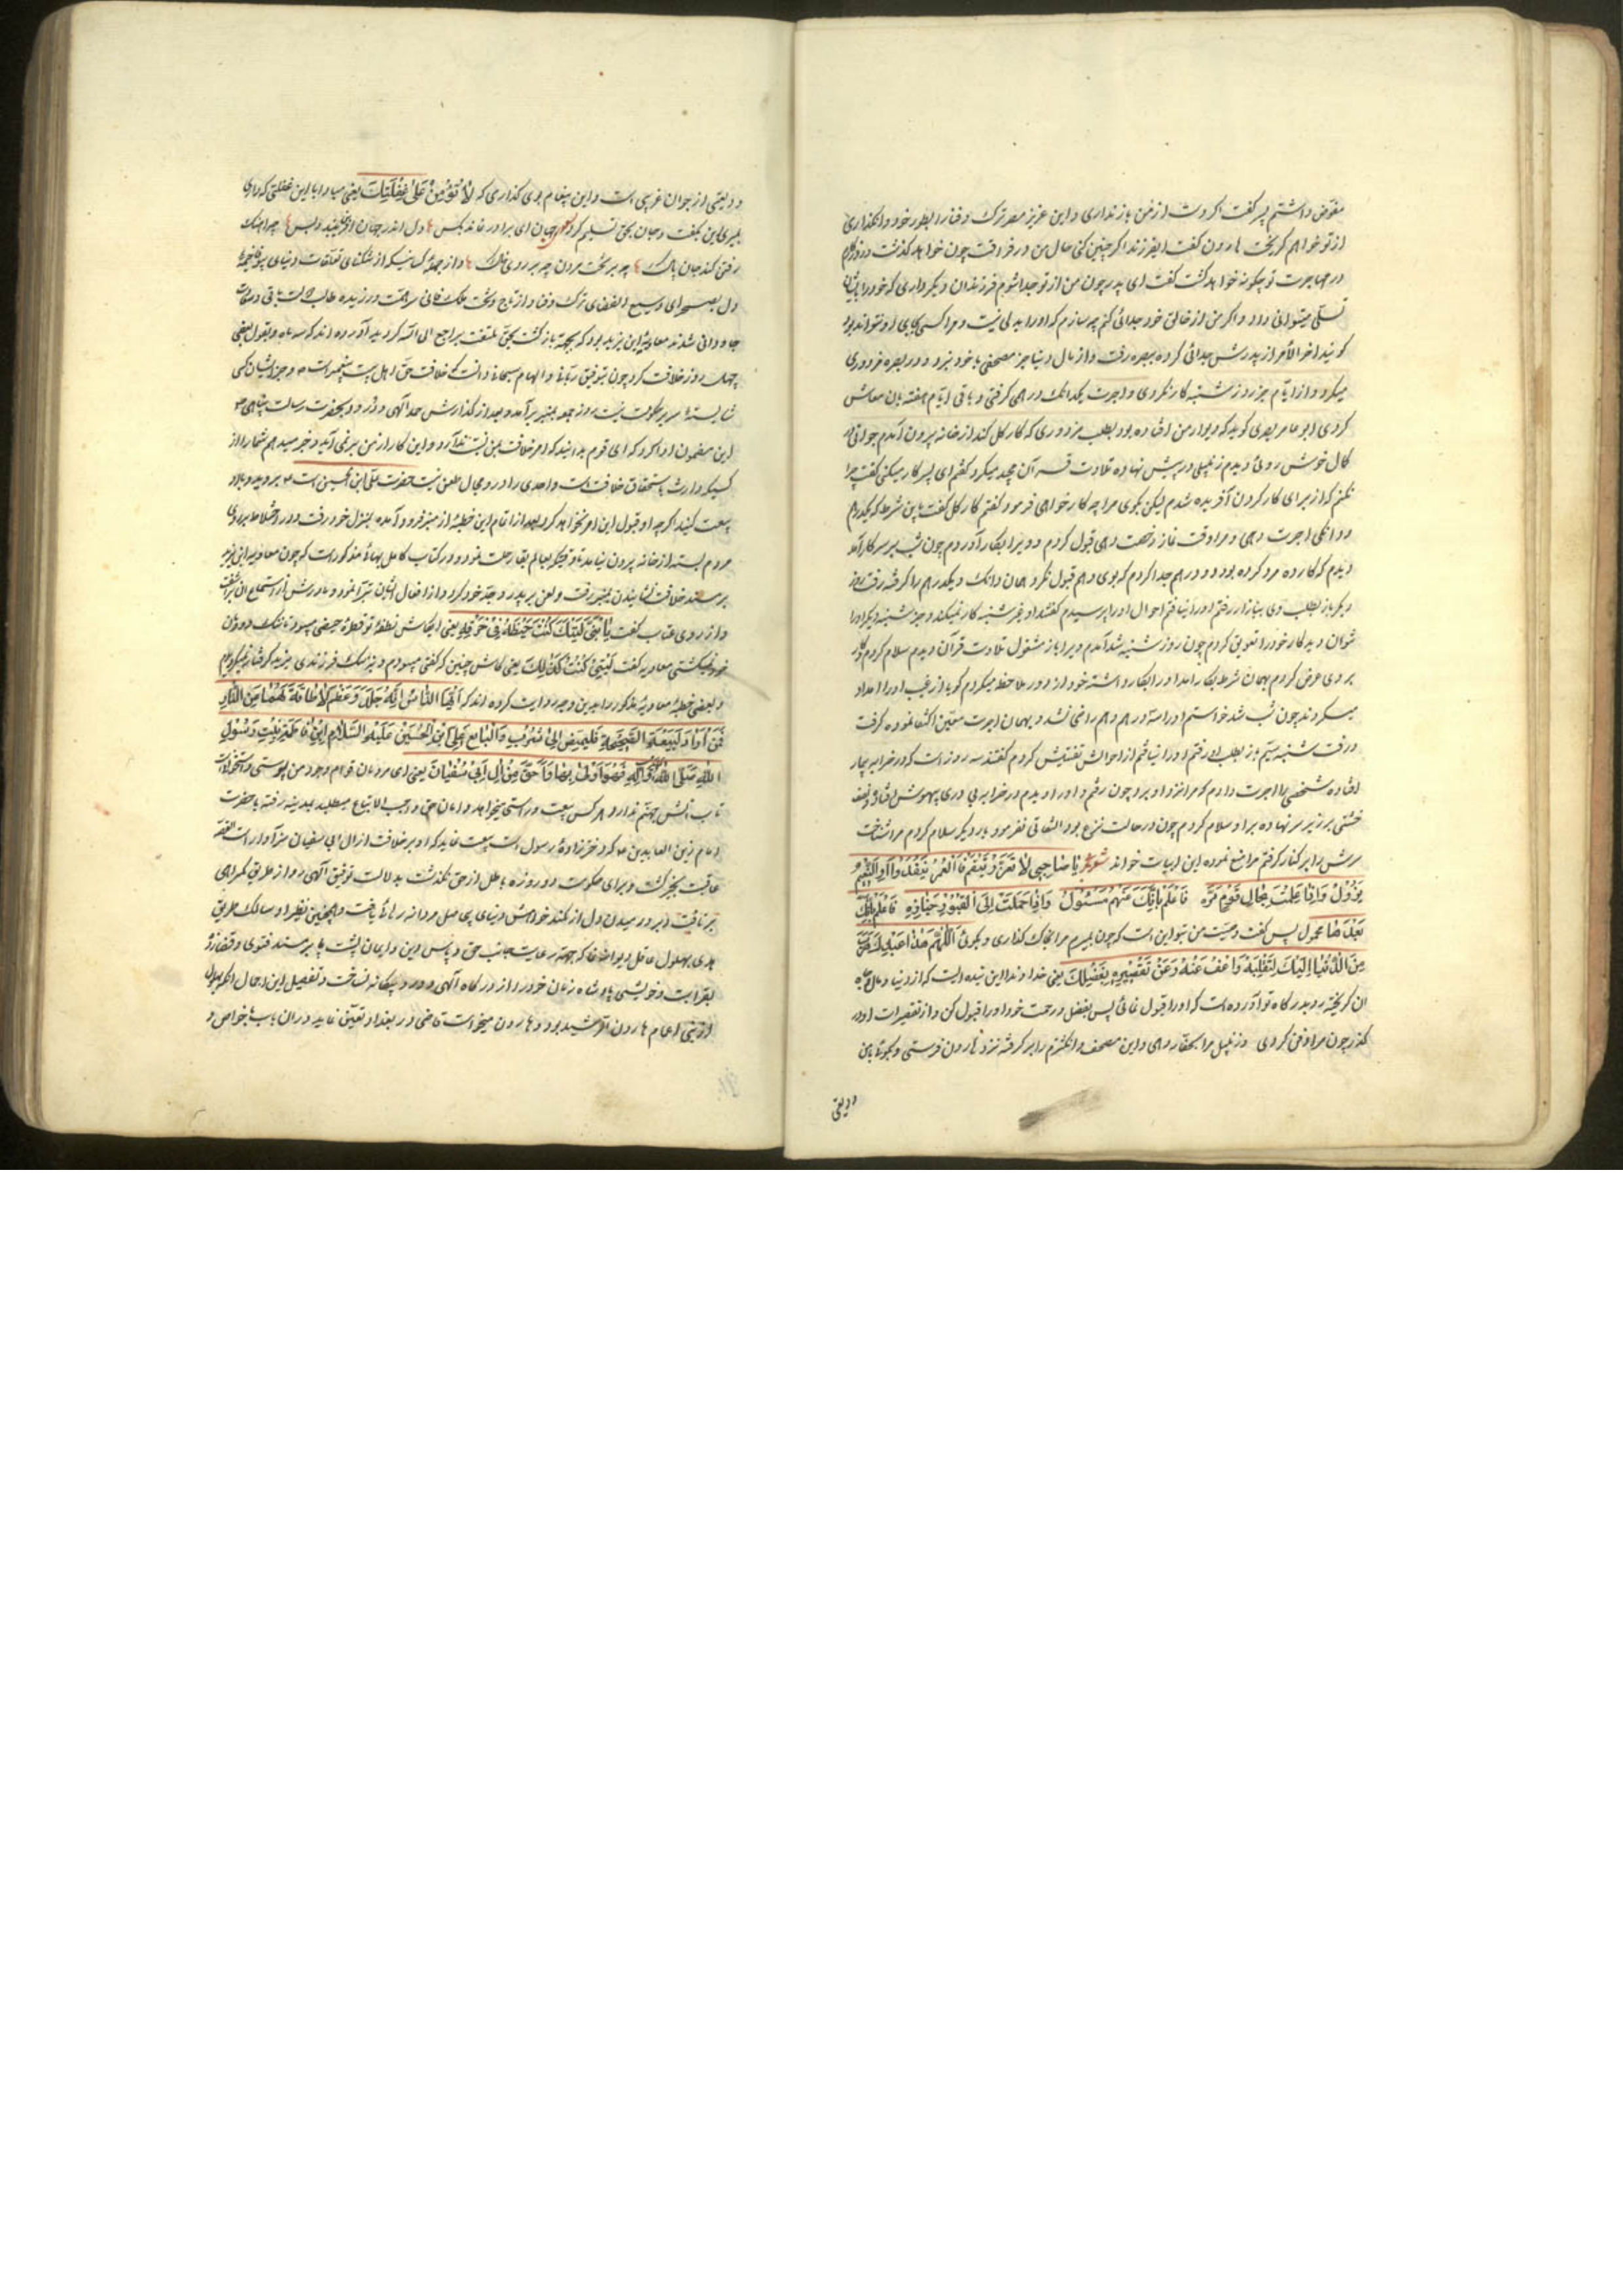 مفوض داشتم پسر گفت اگر دست از من باز نداری و این عزیز مصر ترک وفنا را بطور خود وانگذاری
از تو خواهم گریخت هارون گفت ایفرزند اگر چنین کنی حال من در فراقت چون خواهد گذشت و روزگارم
در مهاجرت تو چگونه خواهد گشت گفت ای پدر چون من از تو جدا شوم فرزندان دیگر داری که خود را بایشان
تسلی میتوانی داد و اگر من از خالق خود جدائی کنم چه سازم که او را بدلی نیست و مرا کسی بجای او نتواند بود
گویند اخر الأمر از پدرش جدائی کرده ببصره رفت و از مال دنیا جز مصحفی با خود نبرد و در بصره مزدوری
میکرد و از ایام جز روز شنبه کار نکردی و اجرت یکدانگ درهمی گرفتی و باقی ایام هفته بان معاش
کردی ابو عامر بصری گوید که دیوار من افتاده بود بطلب مزدوری که کار گل کند از خانه بیرون آمدم جوانی
کمال خوش روئی دیدم زنبیلی در پیش نهاده تلاوت قرآن مجید میکرد گفتم ای پسر کار میکنی گفت چرا
نکنم که از برای کار کردن آفریده شدم لیکن بگوی مرا چه کار خواهی فرمود گفتم کار گل گفت باین شرط که یکدرهم
و دانگی اجرت دهی و مرا وقت نماز رخصت دهی قبول کردم و ویرا بکار آوردم چون شب بر سر کار آمدم
دیدم که کار ده مرد کرده بود دو درهم جدا کردم که بوی دهم قبول نکرد همان دانگ و یکدرهم را گرفته رفت روز
دیگر باز بطلب وی ببازار رفتم او را نیافتم احوال او را پرسیدم گفتند او غیر شنبه کار نمیکند و جز شنبه دیگر او را
نتوان دید کار خود را تعویق کردم چون روز شنبه شد آمدم ویرا باز مشغول تلاوت قرآن دیدم سلام کردم و کار
بر وی عرض کردم بهمان شرط بکار امد او را بکار واداشته خود از دور ملاحظه میکردم گویا از غیب او را امداد
میکردند چون شب شد خواستم او را سه درهم دهم راضی نشد و بهمان اجرت معین اکتفا نموده گرفت
و رفت شنبه سیم باز بطلب او رفتم او را نیافتم از احوالش تفتیش کردم گفتند سه روز است که در خرابه بیمار
افتاده شخصی را اجرت دادم که مرا نزد او برد چون رفتم و او را دیدم در خرابه بی دری بیهوش افتاده و نصف
خشتی بر زیر سر نهاده بر او سلام کردم چون در حالت نزع بود التفاتی نفرمود بار دیگر سلام کردم مرا شناخت
سرش را بر کنار گرفتم مرا منع نموده این ابیات خواند شعر یا صاحبی لا تغررن بتنعم فالعمر ینفد والنعیم
یزول و اذا علمت بحال قوم مره فاعلم بانک عنهم مسئول و اذا حملت الی القبور جنازه فاعلم بانک
بعدها محمول پس گفت وصیت من بتو این است که چون بمیرم مرا بخاک گذاری و بگوئی اللهم هذا عبدک هرب
من الدنیا الیک لتقبله واعف عنه و عن تقصیره بفضلک یعنی خداوندا این بنده ایست که از دنیا و مال و جاه
ان گریخته رو بدرگاه تو آورده است که او را قبول نمائی پس بفضل و رحمت خود او را قبول کن و از تقصیرات او در
گذر چون مرا دفن کردی زنبیل مرا بحفار دهی و این مصحف و انگشترم را بر گرفته نزد هارون فرستی و بگوئی این
ودیعتی
ودیعتی از جوان غریبی است و این پیغام بوی گذاری که لا تؤمن علی غفلتک یعنی مبادا با این غفلتی که داری
بمیری این بگفت و جان بحق تسلیم کرد جهان ای برادر نماند بکس دل اندر جهان آفرین بند و بس چو آهنگ
رفتن کند جان پاک چه بر تخت مردن چه بر روی خاک و از جمله کسانیکه از تنگنای تعلقات دنیای
دل بصحرای وسیع الفضای ترک وفنا و از تاج و تخت ملک فانی سر همت ورزیده طالب دولت باقی و سعادت
جاودانی شدند معاویة ابن یزید بود که بجهة بازگشت بحق ملقب براجع الی الله گردید آورده اند که سه ماه و بقول بعضی
چهل روز خلافت کرد چون بتوفیق ربانی و الهام سبحانی دانست که خلافت حق اهل بیت پیغمبر است و جز ایشان کسی
شایسته سریر حکومت نیست روز جمعه بمنبر برآمده و بعد از گذارش حمد آلهی و درود بحضرت رسالت پناهی
این مضمون ادا کرد که ای قوم بدانید که امر خلافت بمن نسبت ندارد و این کار از من بر نمی آید و خبر میدهم شما را از
کسیکه وارث باستحقاق خلافت است و احدی را در و مجال طعن نیست حضرت علی ابن الحسین است بروید و با او
بیعت کنید اگر چه او قبول این امر نخواهد کرد بعد از اتمام این خطبه از منبر فرود آمده بمنزل خود رفت و در اختلاط بر روی
مردم بسته از خانه بیرون نیامد تا وقتیکه بعالم بقا رحلت نمود و در کتاب کامل بهائی مذکور است که چون معاویه ابن یزید
بر مسند خلافت نشانیدند بمنبر رفت و لعن بر پدر و جد خود کرد و از افعال ایشان تبرا نمود و مادرش از استماع ان بر آشفت
و از روی عتاب گفت یا بنی لیتک کنت حیضة فی خرقة یعنی ایکاش نطفه تو قطره حیضی میبود تا ننگ دودمان
خود نمیگشتی معاویه گفت لیتنی کنت کذلک یعنی کاش چنین که گفتی میبودم و به ننگ فرزندی یزید گرفتار نمیگردیدم
و بعضی خطبه معاویه مذکور را بدین وجه روایت کرده اند که ایها الناس انه جلد و عظم لا طاقة لهما من النار
فمن اراد لبیعته الصحیحة فلیمض الی یثرب و البایع علی ابن الحسین علیه السلام ابن فاطمة بنت رسول
الله صلی الله و آله فهو اولی بها و احق من ال ابی سفیان یعنی ای مردمان قوام وجود من پوستی و استخوانست
تاب آتش جهنم ندارد هر کس بیعت درستی میخواهد و امان حق واجب الاتباع میطلبد بمدینه رفته با حضرت
امام زین العابدین که فرزندزاده رسول است بیعت نماید که او بر خلافت از ال ابی سفیان سزاوار است القصه
عاقبت بخیر گشت و برای حکومت دو روزه باطل از حق نگذشت بدلالت توفیق آلهی رو از طریق گمراهی
برتافت
هدی بهلول عاقل دیوانه نما که جهة رعایت جانب حق و پاس دین و ایمان پشت پا بر مسند فتوی و قضا زد
بقرابت و خویشی پادشاه زمان خود را از درگاه آلهی دور و بیگانه نساخت و تفصیل این اجمال انکه بهلول
از بنی اعمام هارون الرشید بود و هارون میخواست قاضی در بغداد تعیین نماید در ان باب با خواص و